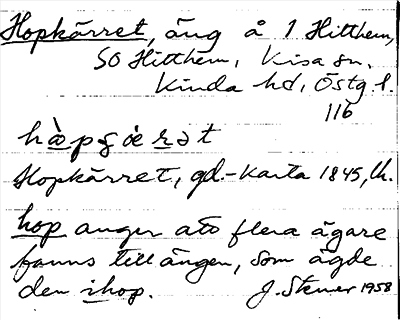 Hopkärret, äng å 1 Hitthem,
SO Hitthem, Kisa sn.
Kinda hd, Östg l.
116
Hopkärret, gd-karta 1845, Lh.
hop anger att flera ägare
fanns till ängen, som ägde
den ihop. J. Stener 1958